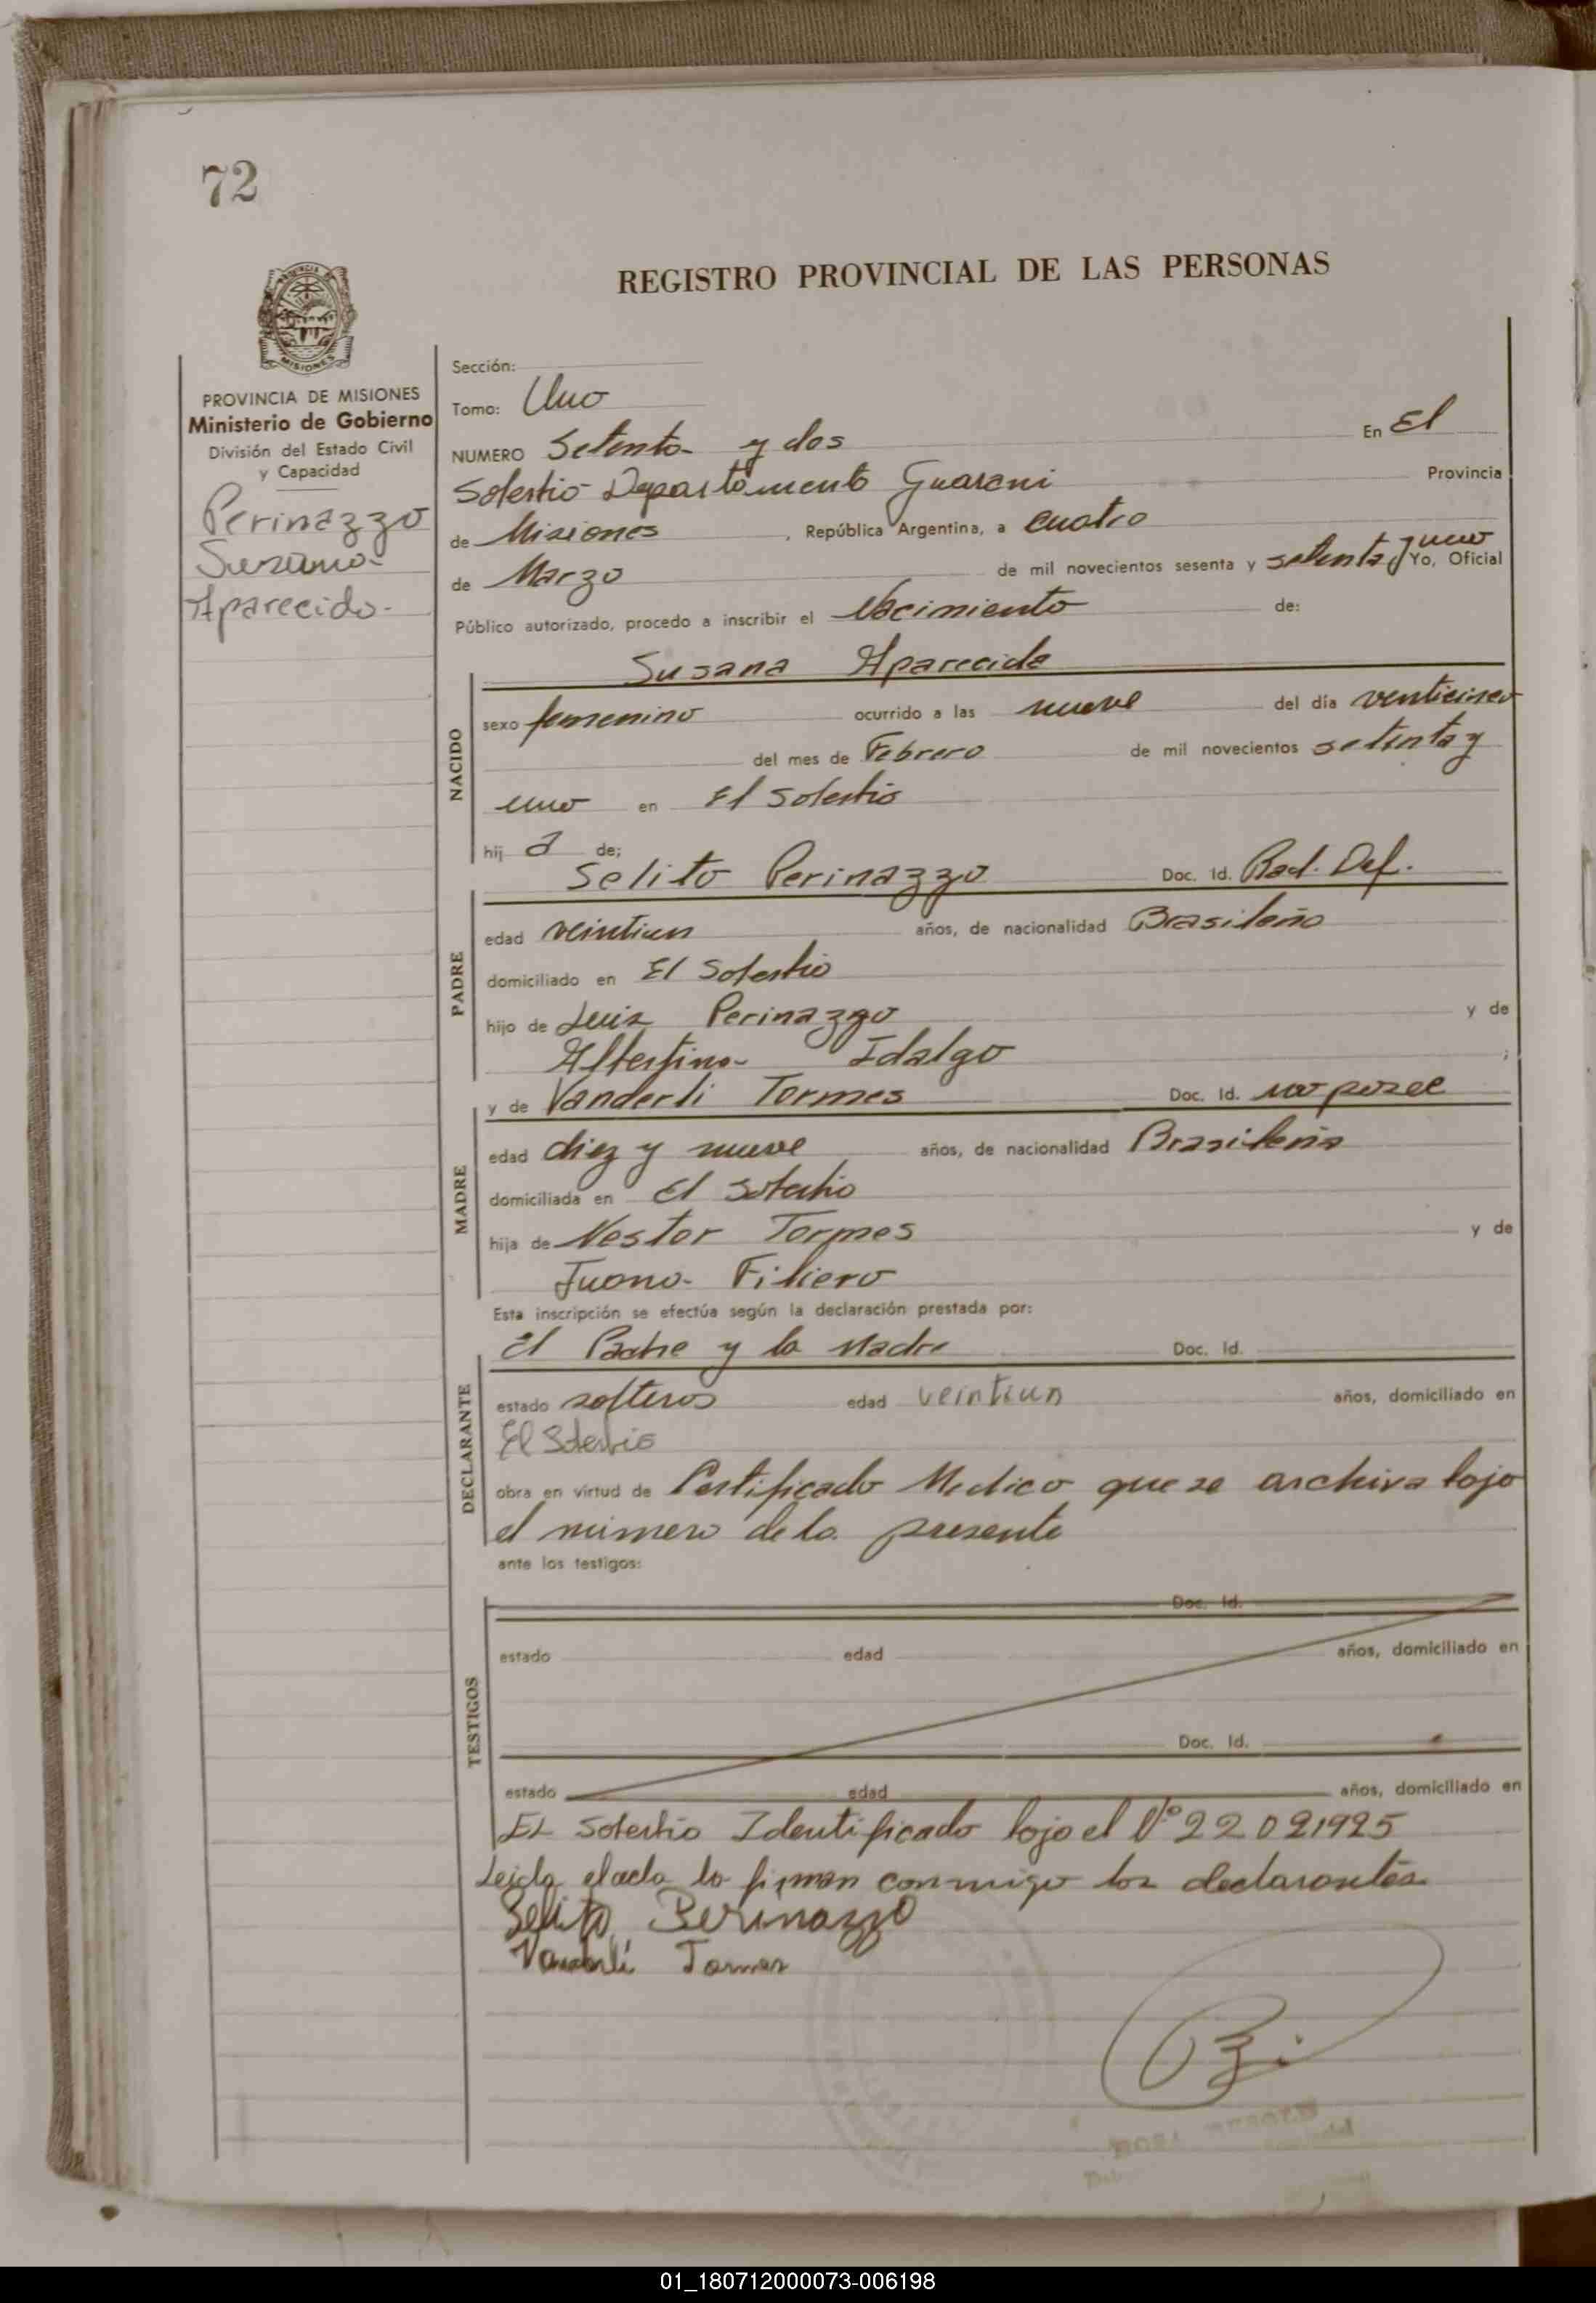 72
REGISTRO PROVINCIAL DE LAS PERSONAS
MISIONES
PROVINCIA DE MISIONES
Ministerio de Gobierno
División del Estado Civil
y Capacidad
Perinazzo
Susana
Aparecida
Sección:
Tomo: Uno
NUMERO Setenta y dos En El
Soberbio Departamento Guarani Provincia
de Misiones, República Argentina, a cuatro
de Marzo de mil novecientos sesenta y setenta y uno Yo, Oficial
Público autorizado, procedo a inscribir el Nacimiento de:
Susana Aparecida
NACIDO
sexo femenino ocurrido a las nueve del día venticinco
del mes de Febrero de mil novecientos setenta y
uno en El Soberbio
hij a de;
Selito Perinazzo Doc. Id. Rad. Def.
PADRE
edad veintiun años, de nacionalidad Brasileño
domiciliado en El Soberbio
hijo de Luis Perinazzo y de
Albertina Idalgo ;
y de Vanderli Tormes Doc. Id. no posee
MADRE
edad diez y nueve años, de nacionalidad Brasileña
domiciliada en El Soberbio
hija de Nestor Tormes y de
Juana Filiero
Esta inscripción se efectúa según la declaración prestada por:
El Padre y la Madre Doc. Id.
DECLARANTE
estado solteros edad veintiun años, domiciliado en
El Soberbio
obra en virtud de Certificado Medico que se archiva bajo
el numero de la presente
ante los testigos:
Doc. Id.
TESTIGOS
estado edad años, domiciliado en
Doc. Id.
estado edad años, domiciliado en
El Soberbio Identificado bajo el Nº 22021925
Leida el acta la firman conmigo los declarantes
Selito Perinazzo
Vanderli Tormes
01_180712000073-006198